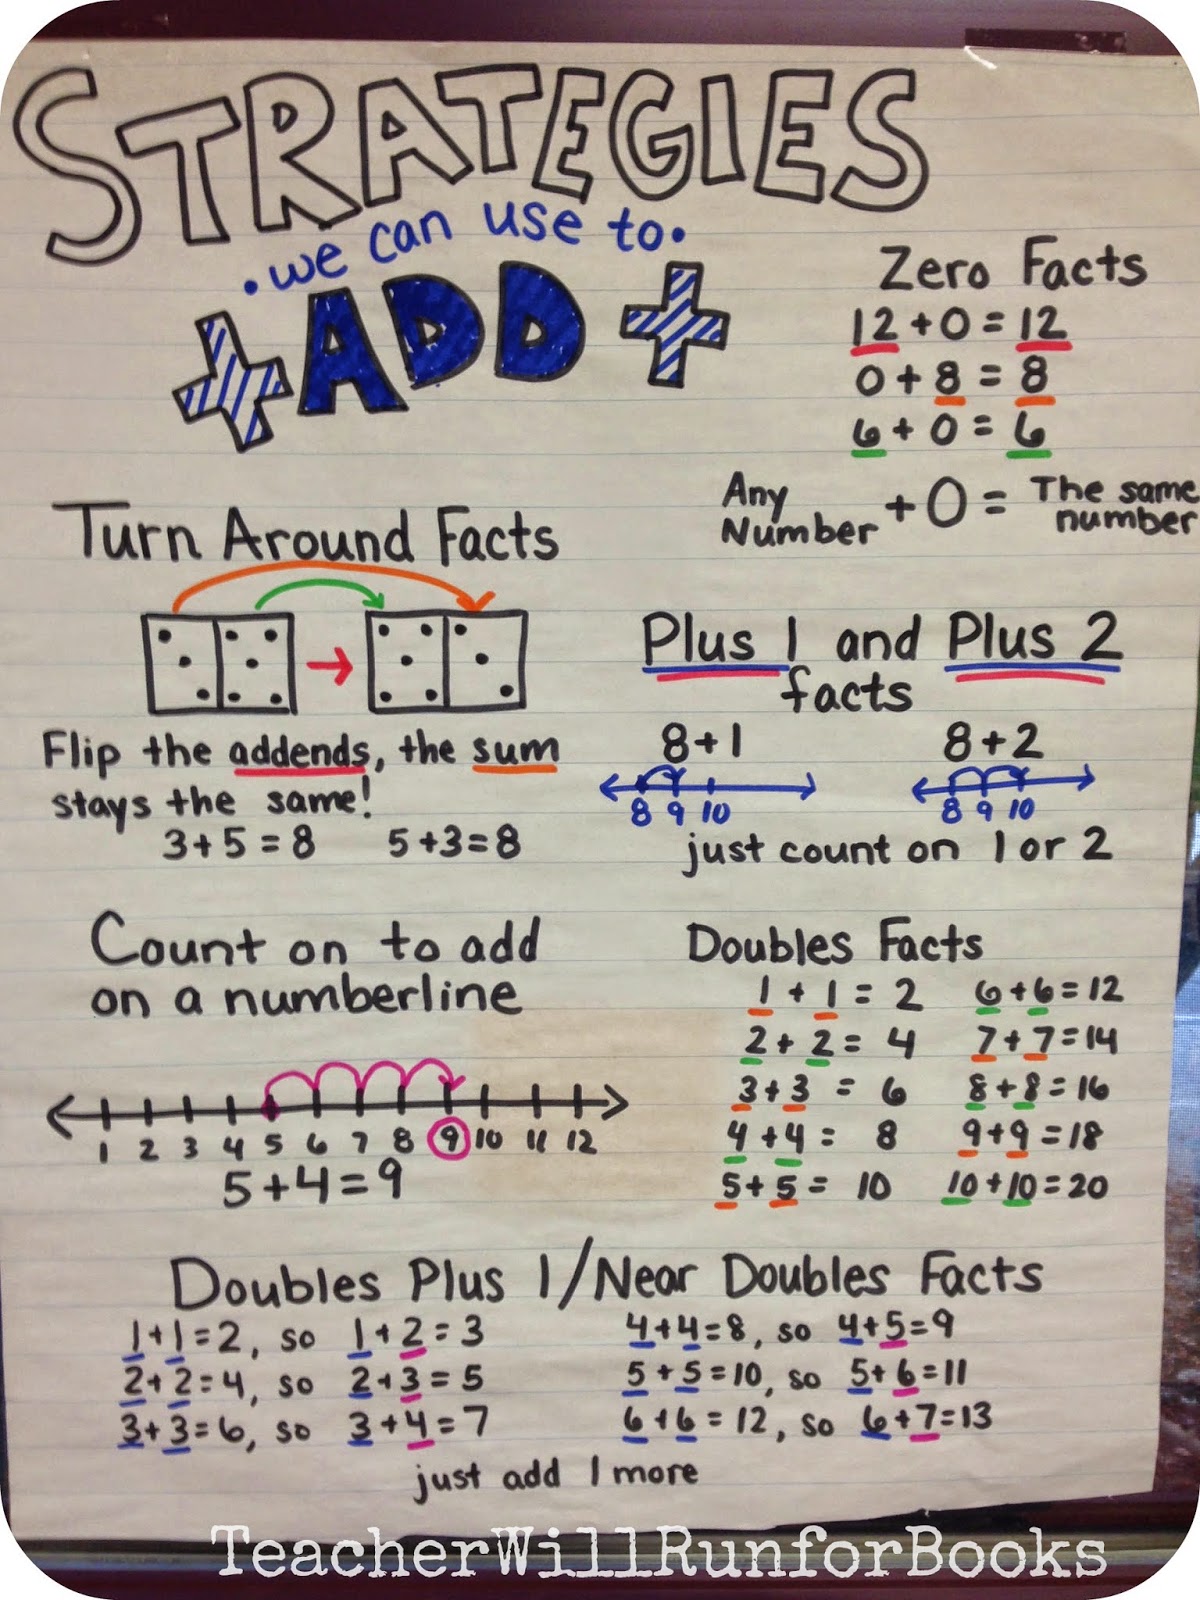 STRATEGIES
.we can use to.
+ADD+
Zero Facts
12+0=12
0+8=8
6+0=6
Any Number +0= The same number
Turn Around Facts
Flip the addends, the sum
stays the same!
3+5=8 5+3=8
Plus 1 and Plus 2
facts
8+1 8+2
8 9 10 8 9 10
just count on 1 or 2
Count on to add
on a numberline
1 2 3 4 5 6 7 8 9 10 11 12
5+4=9
Doubles Facts
1+1=2 6+6=12
2+2=4 7+7=14
3+3=6 8+8=16
4+4=8 9+9=18
5+5=10 10+10=20
Doubles Plus 1/Near Doubles Facts
1+1=2, so 1+2=3 4+4=8, so 4+5=9
2+2=4, so 2+3=5 5+5=10, so 5+6=11
3+3=6, so 3+4=7 6+6=12, so 6+7=13
just add 1 more
TeacherWillRunforBooks